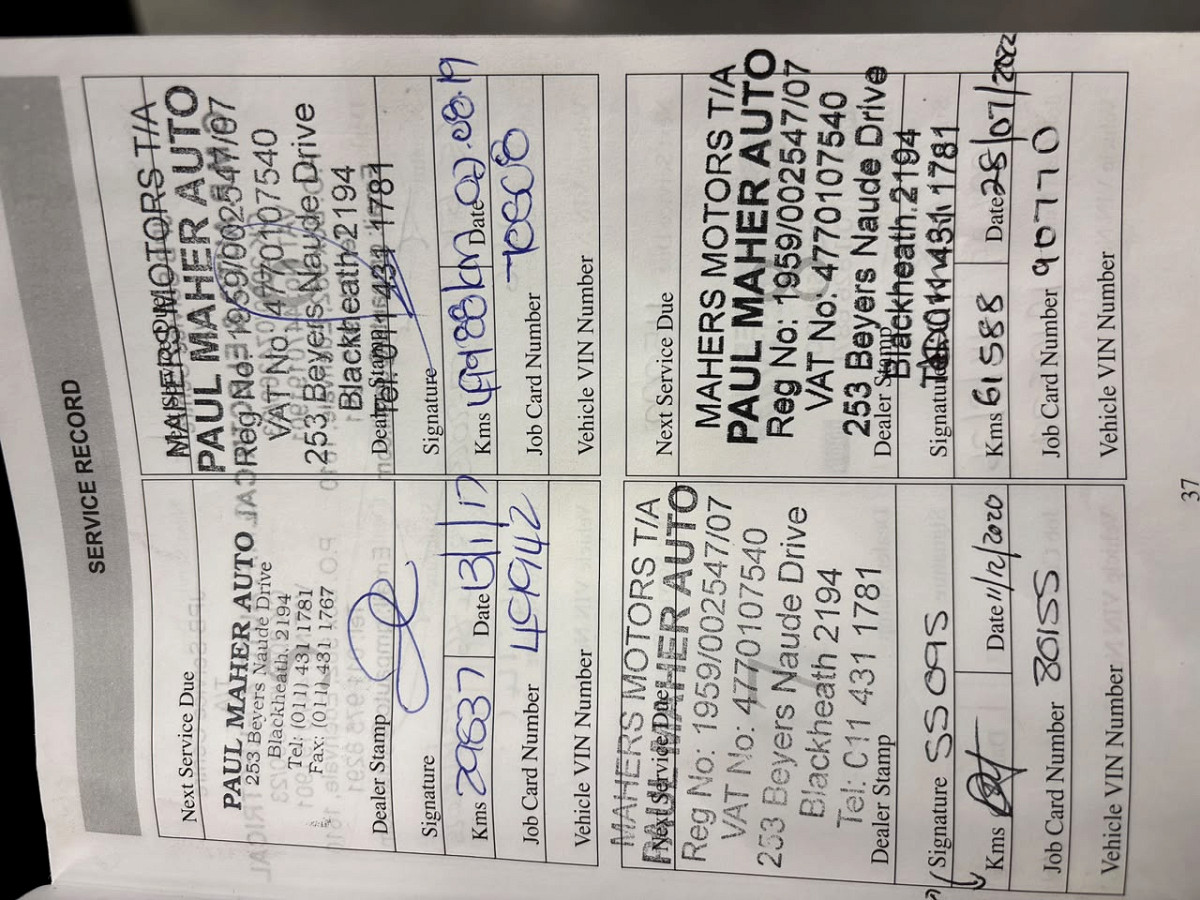 SERVICE RECORD
Next Service Due
PAUL MAHER AUTO
253 Beyers Naude Drive
Blackheath, 2194
Tel: (011) 431 1781
Fax: (011) 431 1767
Dealer Stamp
Signature
Kms 29637 Date 13/1/17
Job Card Number 49942
Vehicle VIN Number
MAHERS MOTORS T/A
PAUL MAHER AUTO
Reg No: 1959/002547/07
VAT No: 4770107540
253 Beyers Naude Drive
Blackheath 2194
Tel: 011 431 1781
Dealer Stamp
Signature
Kms 49988km Date 02.08.19
Job Card Number
Vehicle VIN Number
MAHERS MOTORS T/A
Next Service Due
PAUL MAHER AUTO
Reg No: 1959/002547/07
VAT No: 4770107540
253 Beyers Naude Drive
Blackheath 2194
Tel: C11 431 1781
Dealer Stamp
Signature 55095
Kms Date 11/12/2020
Job Card Number 80155
Vehicle VIN Number
Next Service Due
MAHERS MOTORS T/A
PAUL MAHER AUTO
Reg No: 1959/002547/07
VAT No: 4770107540
253 Beyers Naude Drive
Dealer Stamp
Blackheath 2194
Signature
Tel: 011 431 1781
Kms 61588 Date 28/07/2022
Job Card Number 90770
Vehicle VIN Number
37